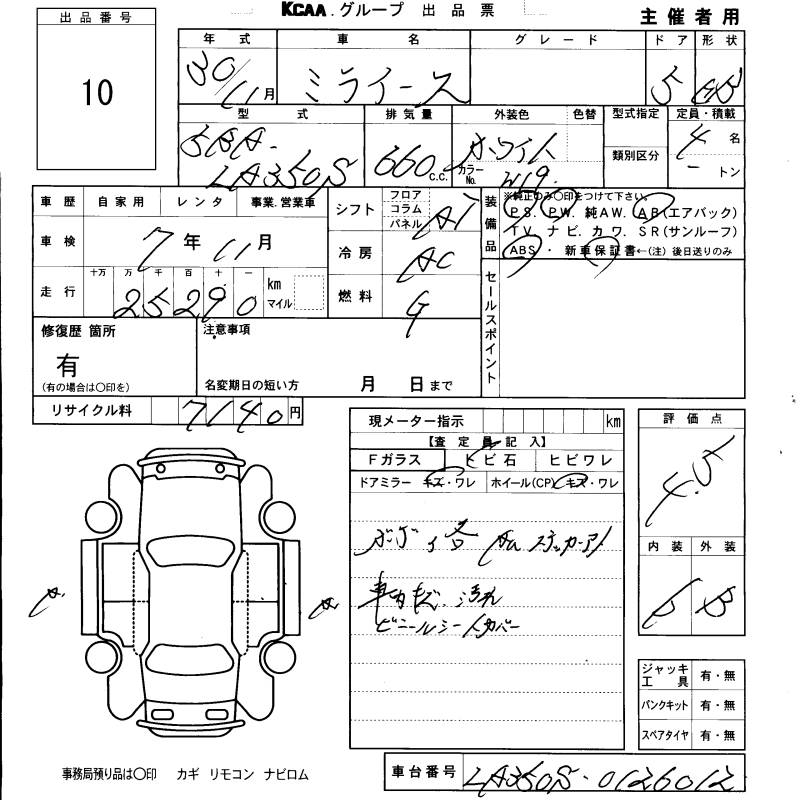 KCAA.グループ 出品票 主催者用
出品番号
10
年式 車名 グレード ドア 形状
30/11月 ミライース 5
型式 排気量 外装色 色替 型式指定 定員・積載
5BA-LA350S 660 C.C. ホワイト 4名
カラーNo. W19 類別区分 - トン
車歴 自家用 レンタ 事業.営業車
車検 7年11月
走行 十万 万 千 百 十 一 km マイル
25290
シフト フロア コラム パネル AT
冷房 AC
燃料 G
装備品 ※純正のみ〇印をつけて下さい。
PS. PW. 純AW. AB(エアバック)
TV. ナビ. カワ. SR(サンルーフ)
ABS ・ 新車保証書←(注) 後日送りのみ
セールスポイント
修復歴 箇所
有
(有の場合は〇印を)
注意事項
名変期日の短い方 月 日まで
リサイクル料 7140円
現メーター指示 km
【査定員記入】
Fガラス ヒビ石 ヒビワレ
ドアミラー キズ・ワレ ホイール(CP) キズ・ワレ
車内キズ、汚れ
ビニールシートカバー
評価点
4.5
内装 外装
B B
A. A.
ジャッキ工具 有・無
パンクキット 有・無
スペアタイヤ 有・無
事務局預り品は〇印 カギ リモコン ナビロム
車台番号 LA350S-0126012